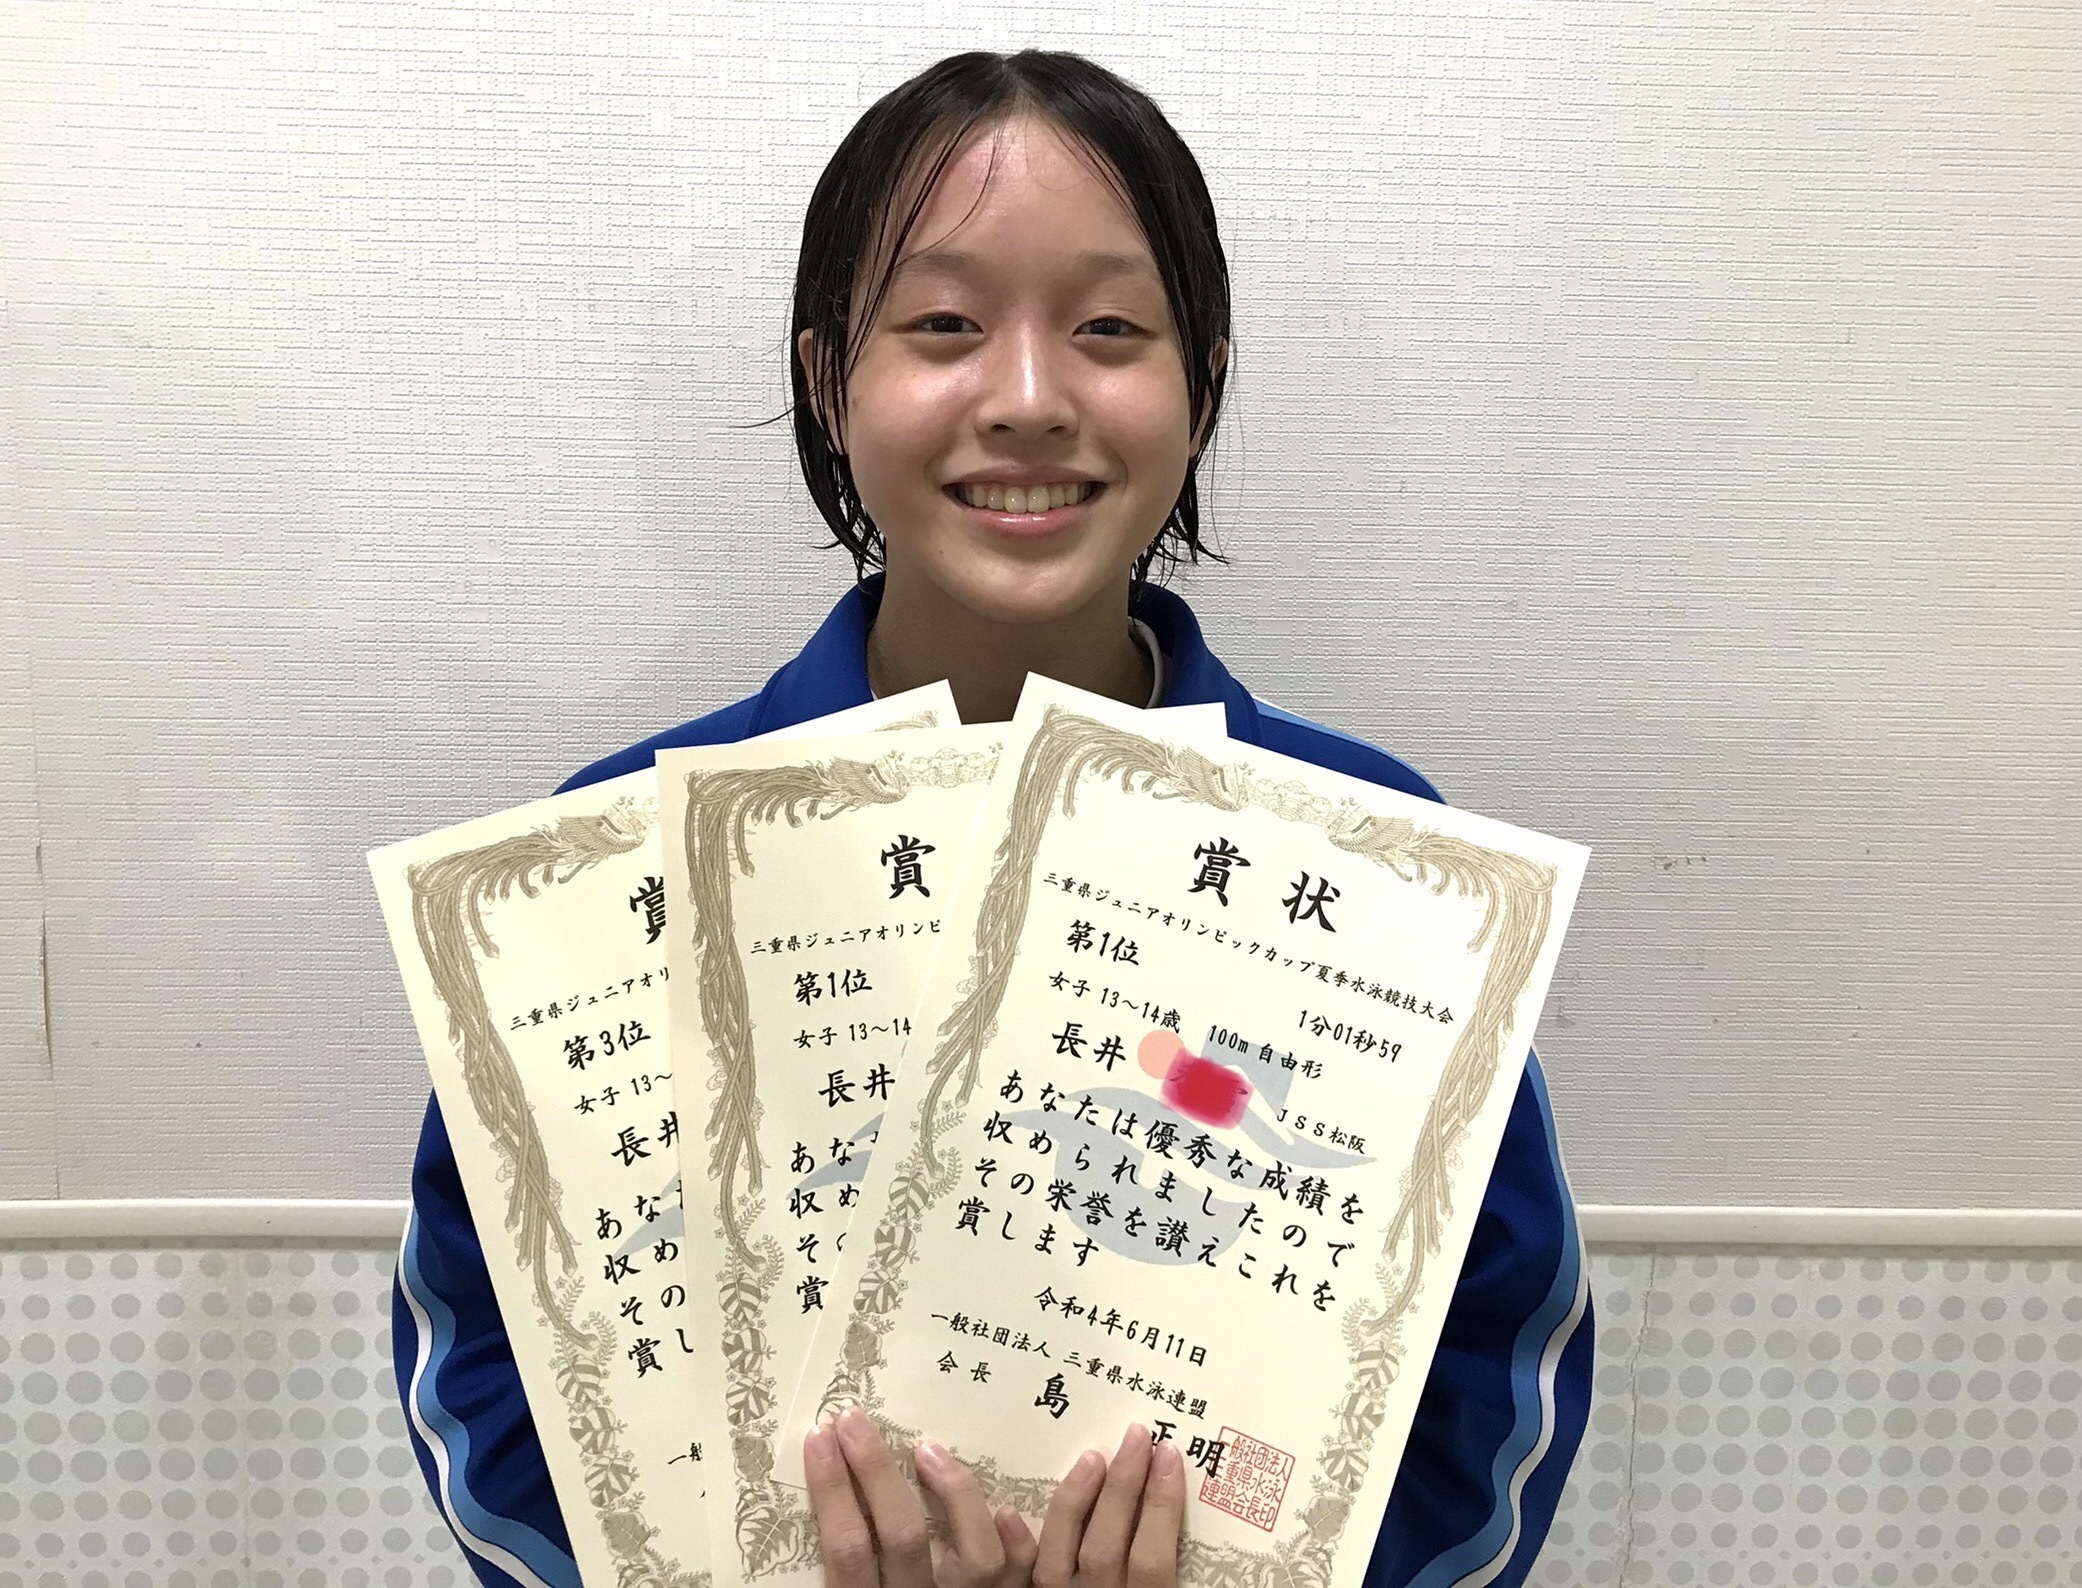 賞
三重県ジュニアオリ
第3位
女子 13〜
長井
あな
収め
その
賞し
一般
賞
三重県ジュニアオリンピ
第1位
女子 13〜14
長井
あな
収め
そ
賞
賞状
三重県ジュニアオリンピックカップ夏季水泳競技大会
第1位
1分01秒59
女子 13〜14歳 100m 自由形
長井
JSS松阪
あなたは優秀な成績を
収められましたので
その栄誉を讃えこれを
賞します
令和4年6月11日
一般社団法人 三重県水泳連盟
会長 島 正明
一般社団法人
三重県水泳
連盟会長印